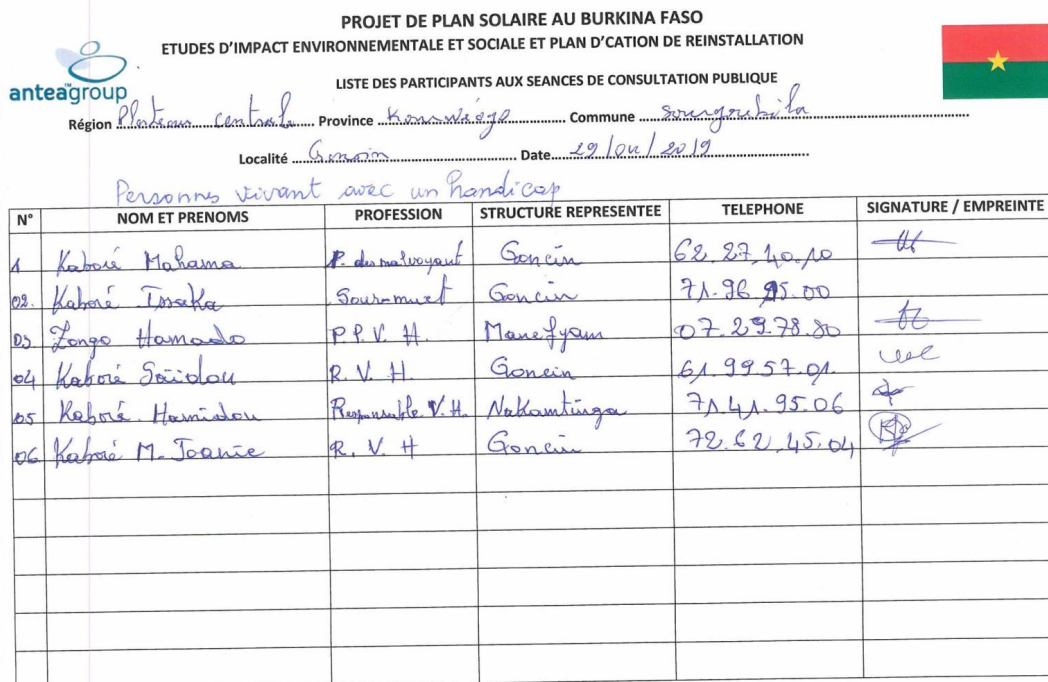 PROJET DE PLAN SOLAIRE AU BURKINA FASO
ETUDES D'IMPACT ENVIRONNEMENTALE ET SOCIALE ET PLAN D'CATION DE REINSTALLATION
anteagroup
LISTE DES PARTICIPANTS AUX SEANCES DE CONSULTATION PUBLIQUE
Région Plateau centrale Province Commune
Localité Gonsin Date 29/04/2019
Personnes vivant avec un handicap
N° NOM ET PRENOMS PROFESSION STRUCTURE REPRESENTEE TELEPHONE SIGNATURE / EMPREINTE
1 Kaboré Mahama P. des malvoyant Goncin 62.27.40.10
02. Kaboré Issaka Sour-muet Goncin 71.96.15.00
03 Zongo Hamado P.P.V.H. Manefyam 07.29.78.80
04 Kaboré Saïdou R.V.H. Goncin 61.99 57.01
05 Kaboré Hamidou Responsable V.H. Nakamtinga 71.41.95.06
06 Kaboré M. R.V.H Goncin 72.62.45.04